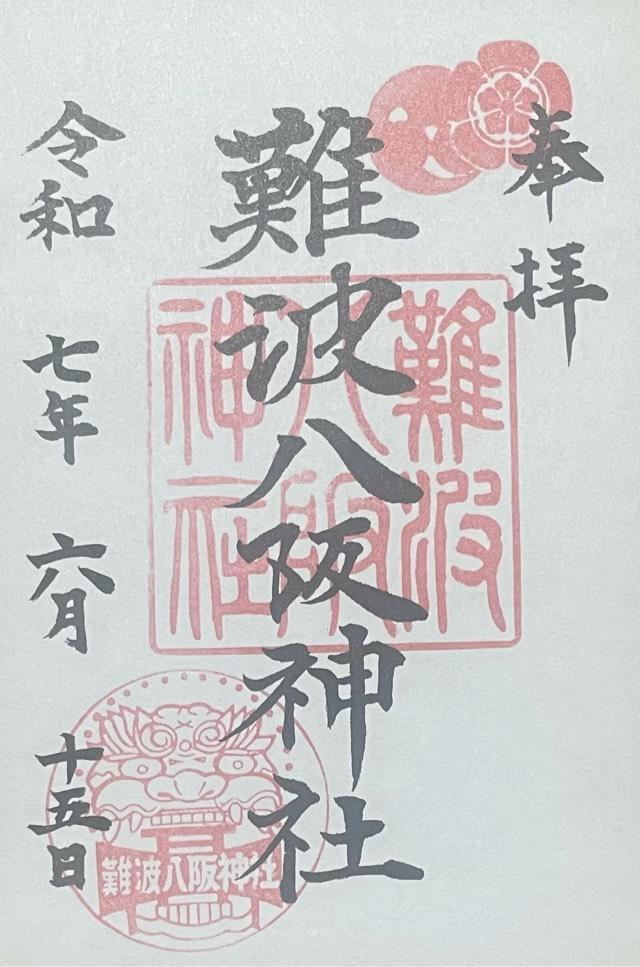 奉拝
難波八阪神社
難波八阪神社
令和七年六月十五日
難波八阪神社